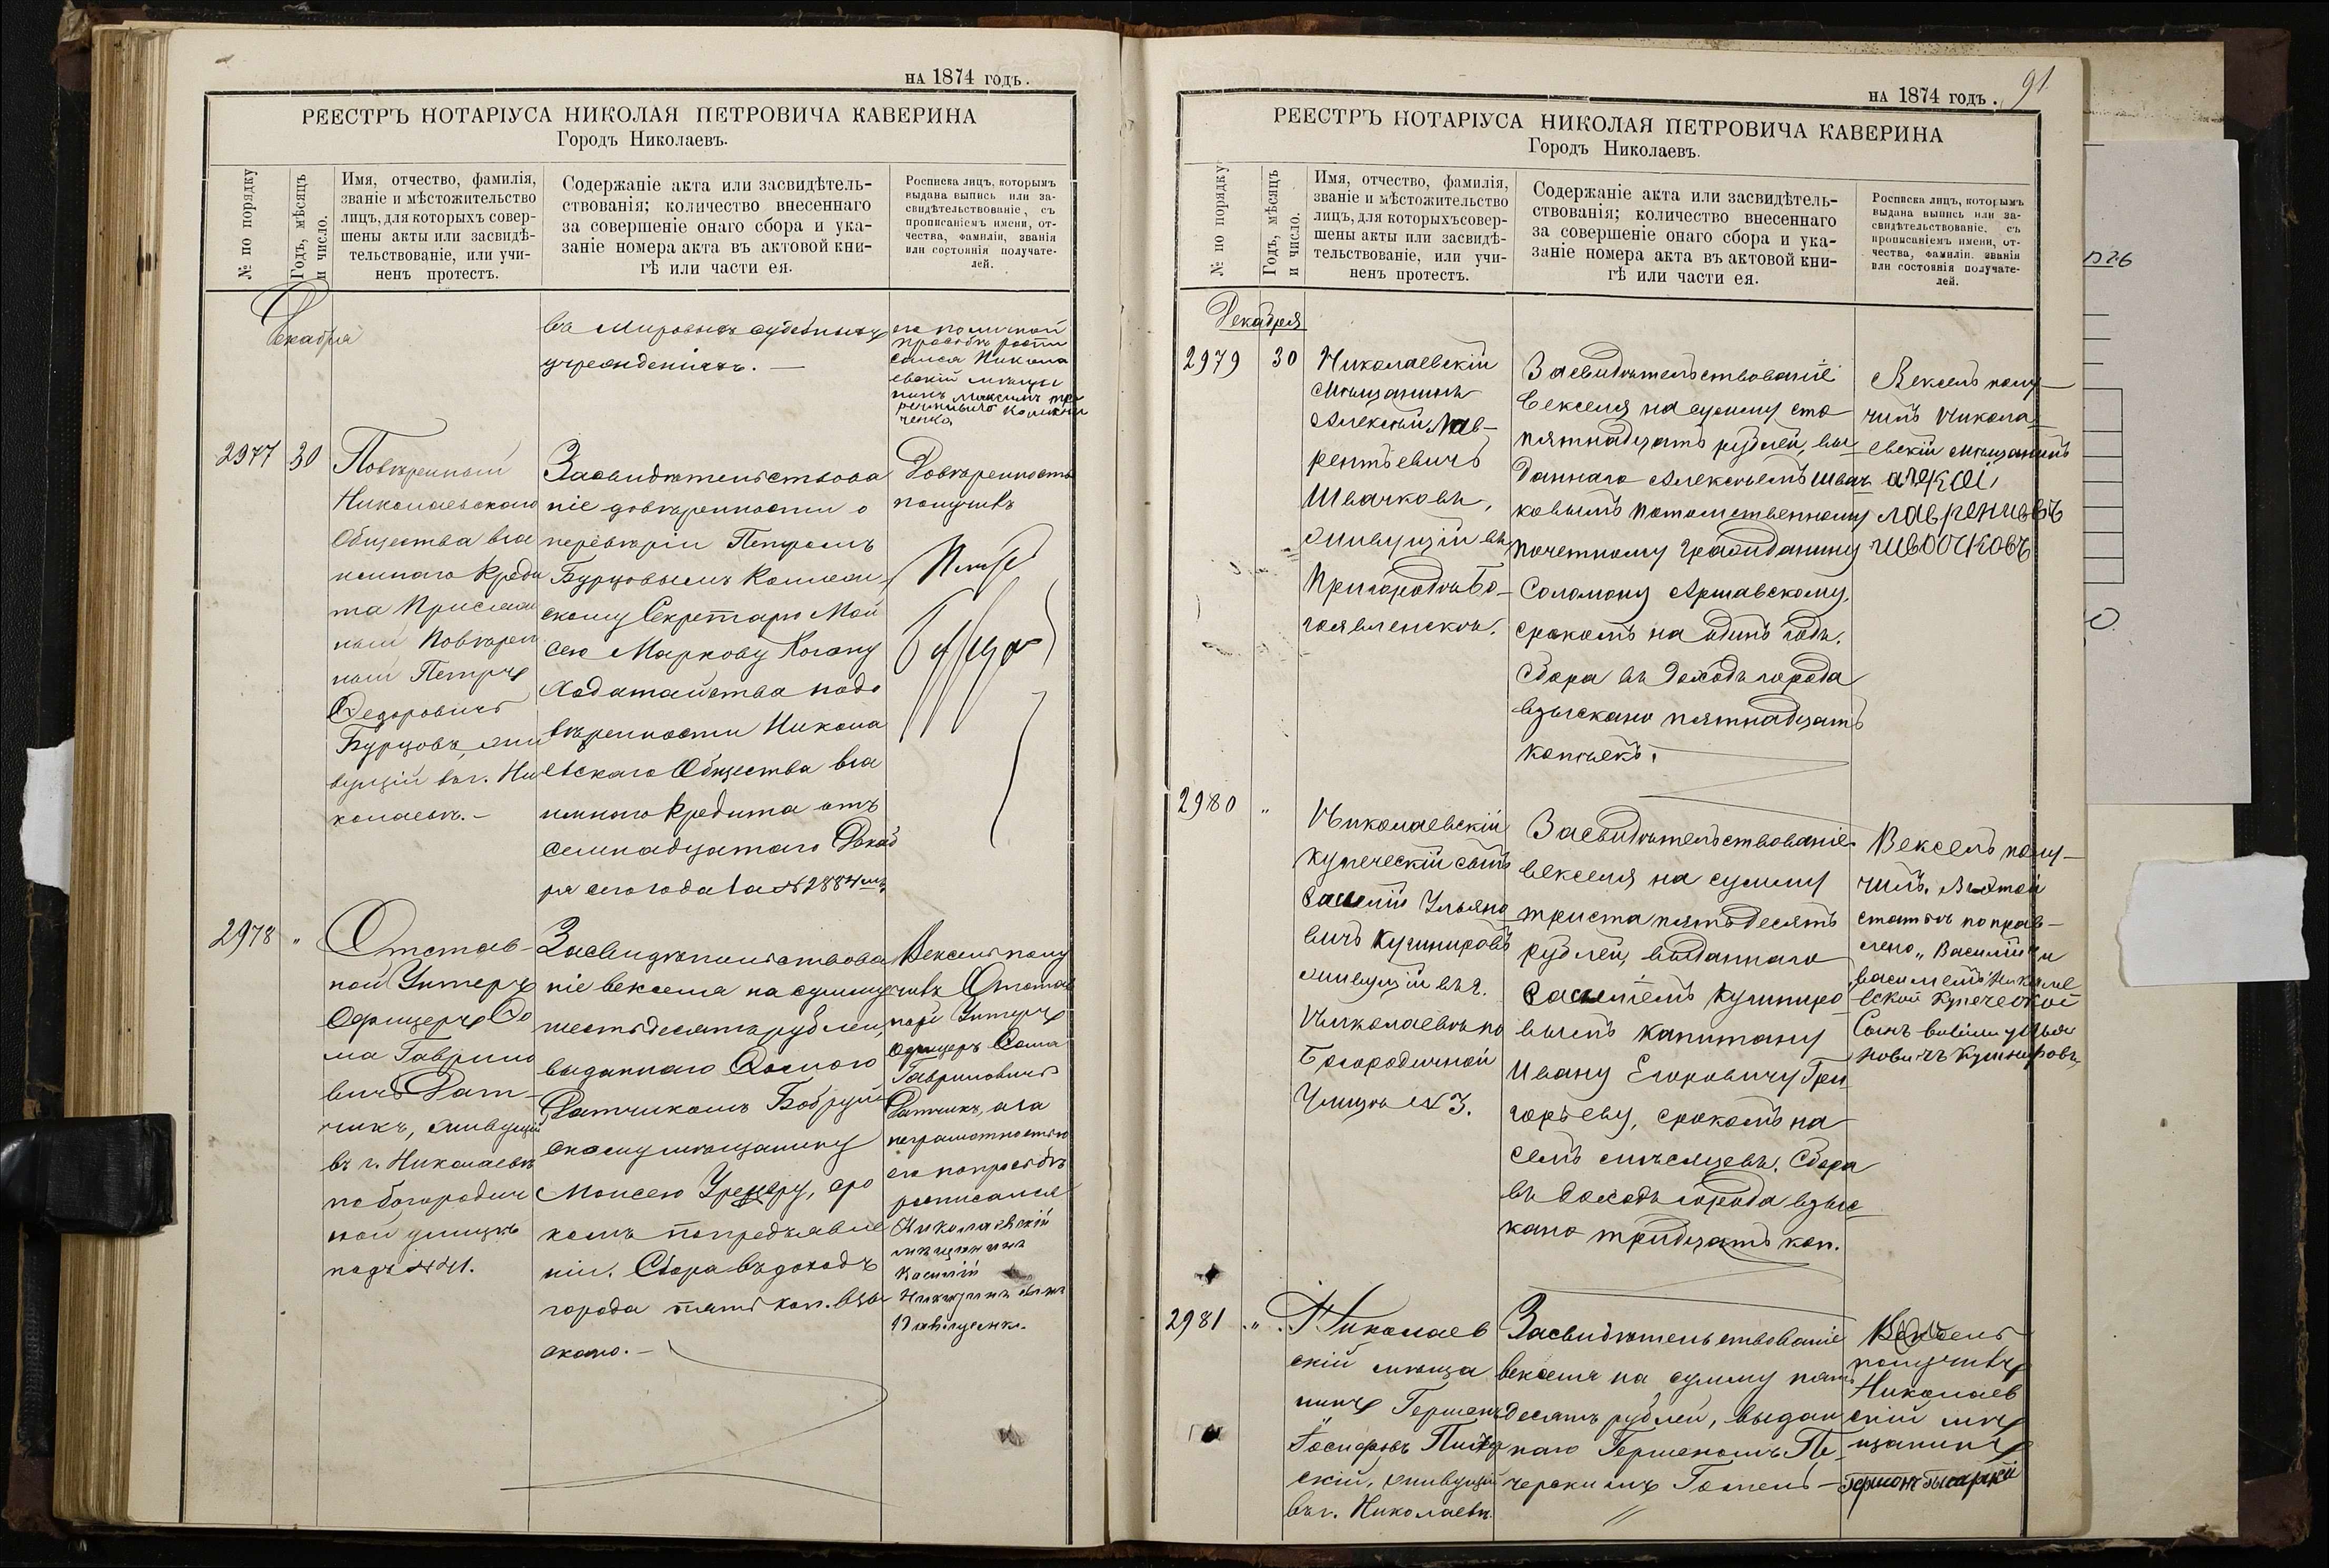 НА 1874 годъ.
РЕЕСТРЪ НОТАРІУСА НИКОЛАЯ ПЕТРОВИЧА КАВЕРИНА
Городъ Николаевъ.
№ по порядку
Годъ, мѣсяцъ
и число.
Имя, отчество, фамилія,
званіе и мѣстожительство
лицъ, для которыхъ совер-
шены акты или засвидѣ-
тельствованіе, или учи-
ненъ протестъ.
Содержаніе акта или засвидѣтель-
ствованія; количество внесеннаго
за совершеніе онаго сбора и ука-
заніе номера акта въ актовой кни-
гѣ или части ея.
Росписка лицъ, которымъ
выдана выпись или за-
свидѣтельствованіе, съ
прописаніемъ имени, от-
чества, фамиліи, званія
или состоянія получате-
лей.
Декабря
въ Мировыхъ судебныхъ
учрежденіяхъ. —
его по личной
просьбѣ роспи
сался Никола
евскій мѣщა
нинъ Максимъ
2977
30
Повѣренный
Николаевскаго
Общества вза
имнаго Креди
та Присяж
ный Повѣрен
ный Петръ
Федоровичъ
Бурцовъ, жи
вущій въ г. Ни
колаевѣ. —
Засвидѣтельствова
ніе довѣренности о
перевѣріи Петромъ
Бурцовымъ Коллеж
скому Секретарю Мой
сею Маркову Когану
ходатайства по до
вѣренности Никола
евскаго Общества вза
имнаго Кредита отъ
семнадцатаго Декаб
ря сего года за № 2884мъ
Довѣренность
получилъ
2978
"
Отстав-
ной Унтеръ
Офицеръ Фо
ма Гаврило
вичъ Дат-
чикъ, живущій
въ г. Николаевѣ
по Богородич
ной улицѣ
подъ № 41.
Засвидѣтельствова
ніе векселя на сумму
шестьдесятъ рублей,
выданнаго Фомою
Датчикомъ Бобруй
скому мѣщанину
Моисею, сро
комъ по предъявле
ніи. Сбора въ доходъ
города шесть коп. взы
скано. —
Вексель полу
чилъ Отстав
ной Унтеръ
Офицеръ Фома
Гавриловичъ
Датчикъ, а за
неграмотностью
его по просьбѣ
росписался
Николаевскій
мѣщанинъ
Василій
НА 1874 годъ.
91
РЕЕСТРЪ НОТАРІУСА НИКОЛАЯ ПЕТРОВИЧА КАВЕРИНА
Городъ Николаевъ.
№ по порядку
Годъ, мѣсяцъ
и число.
Имя, отчество, фамилія,
званіе и мѣстожительство
лицъ, для которыхъ совер-
шены акты или засвидѣ-
тельствованіе, или учи-
ненъ протестъ.
Содержаніе акта или засвидѣтель-
ствованія; количество внесеннаго
за совершеніе онаго сбора и ука-
заніе номера акта въ актовой кни-
гѣ или части ея.
Росписка лицъ, которымъ
выдана выпись или за-
свидѣтельствованіе, съ
прописаніемъ имени, от-
чества, фамиліи, званія
или состоянія получате-
лей.
Декабря
2979
30
Николаевскій
Мѣщанинъ
Алексѣй Лав-
рентьевичъ
Швачковъ,
живущій въ
Пригородѣ Бо-
гоявленскѣ.
Засвидѣтельствованіе
векселя на сумму сто
пятнадцать рублей, вы
даннаго Алексѣемъ Швач
ковымъ потомственному
почетному гражданину
Соломону Аршавскому,
срокомъ на одинъ годъ.
Сбора въ доходъ города
взыскано пятнадцать
копѣекъ.
Вексель полу-
чилъ Никола-
евскій Мѣщанинъ
2980
"
Николаевскій
купеческій сынъ
Василій Ульяно
вичъ Кушнировъ
живущій въ г.
Николаевѣ по
Богородичной
Улицѣ № 3.
Засвидѣтельствованіе
векселя на сумму
триста пятьдесятъ
рублей, выданнаго
Василіемъ Кушниро
вымъ Капитану
Ивану Егоровичу Гри
горьеву, срокомъ на
семь мѣсяцевъ. Сбора
въ доходъ города взыс
кано тридцать коп.
Вексель полу-
чилъ. Въ этой
статьѣ поправ-
лено "Василій и
Василіемъ" Николае
вской Купеческой
Сынъ Василий Улья
новичъ Кушнировъ
2981
"
Николаев
скій мѣща
нинъ Гершенъ
скій, живущій
въ г. Николаевѣ.
Засвидѣтельствованіе
векселя на сумму пять
десятъ рублей, выдан
наго Гершеномъ Пе-
Вексель
получилъ
Николаев
скій мѣ
щанинъ